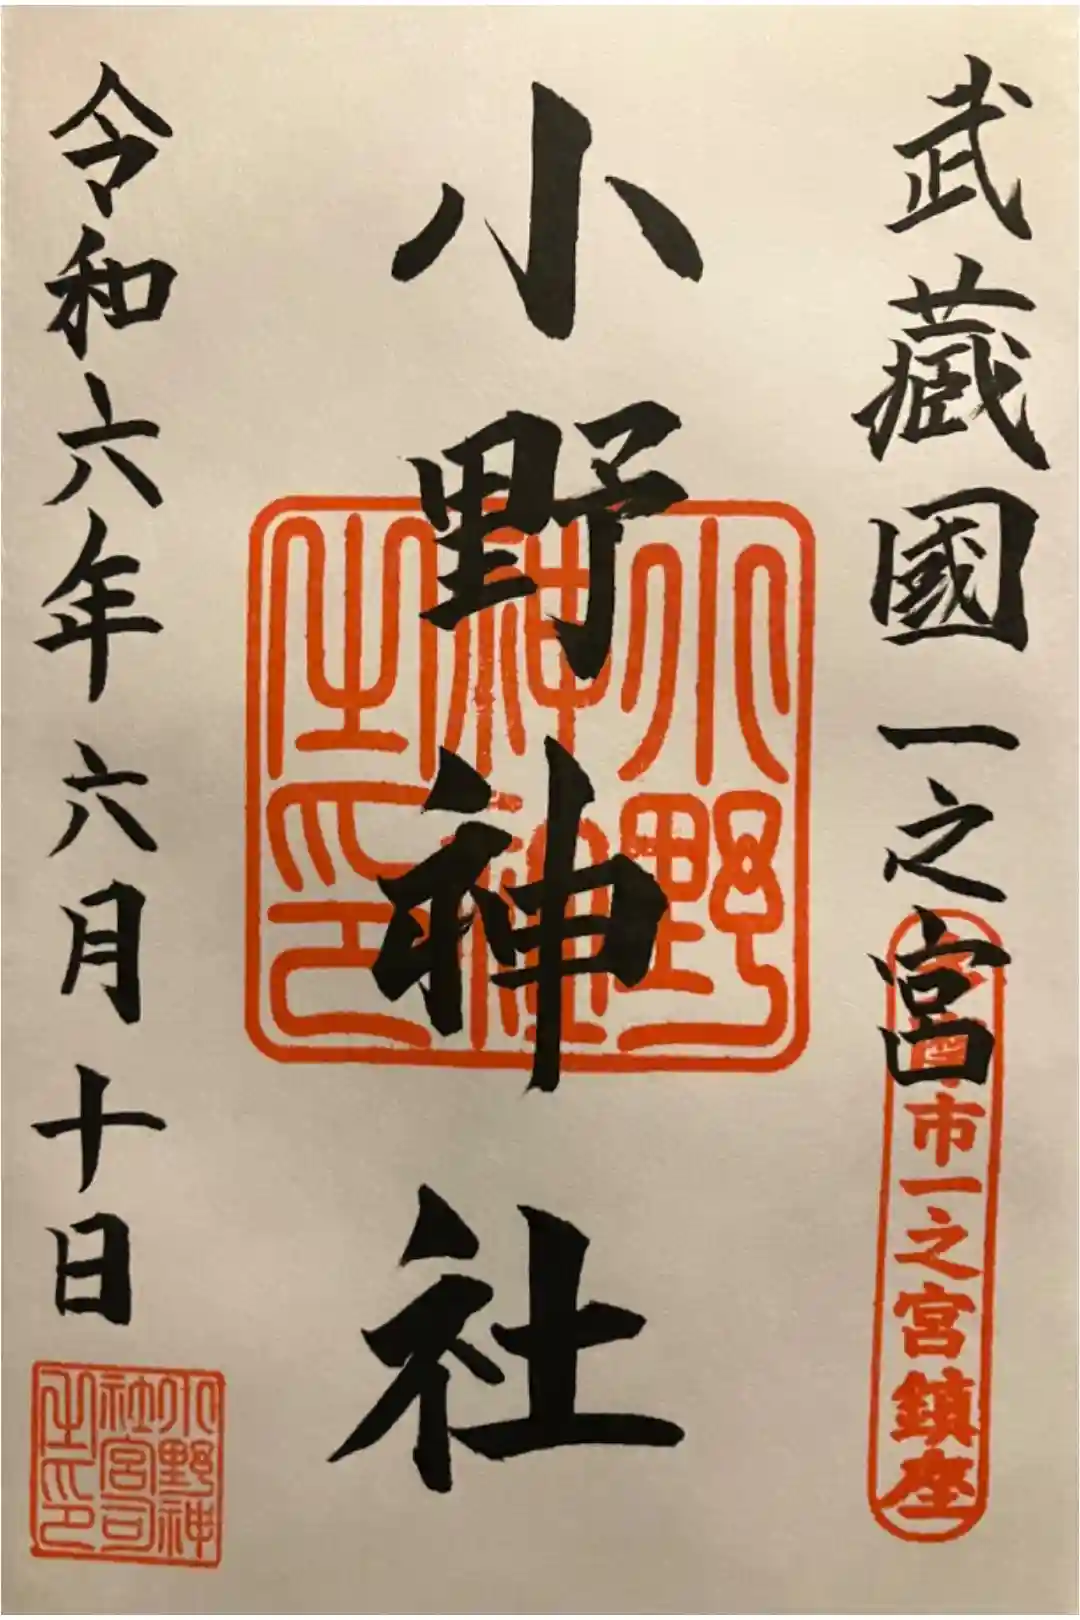 武藏國一之宮
多摩市一之宮鎮座
小野神社
小野
神社
之印
令和六年六月十日
小野神
社宮司
之印